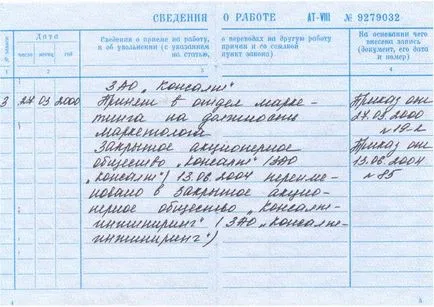 СВЕДЕНИЯ О РАБОТЕ АТ-VIII № 9279032
№ записи
Дата
Сведения о приеме на работу, о переводах на другую работу
и об увольнении (с указанием причин и со ссылкой
на статью, пункт закона)
На основании чего
внесена запись
(документ, его дата
и номер)
число месяц год
1 2 3 4
ЗАО „Консалт"
3 24 03 2000 Принят в отдел марке-
тинга на должность
маркетолога
Приказ от
24.03.2000
№ 19-2
Закрытое акционерное
общество „Консалт" (ЗАО
„Консалт") 13.06.2004 переиме-
новано в Закрытое акцио-
нерное общество „Консалт-
инжиниринг" (ЗАО „Консалт-
инжиниринг")
Приказ от
13.06.2004
№ 85